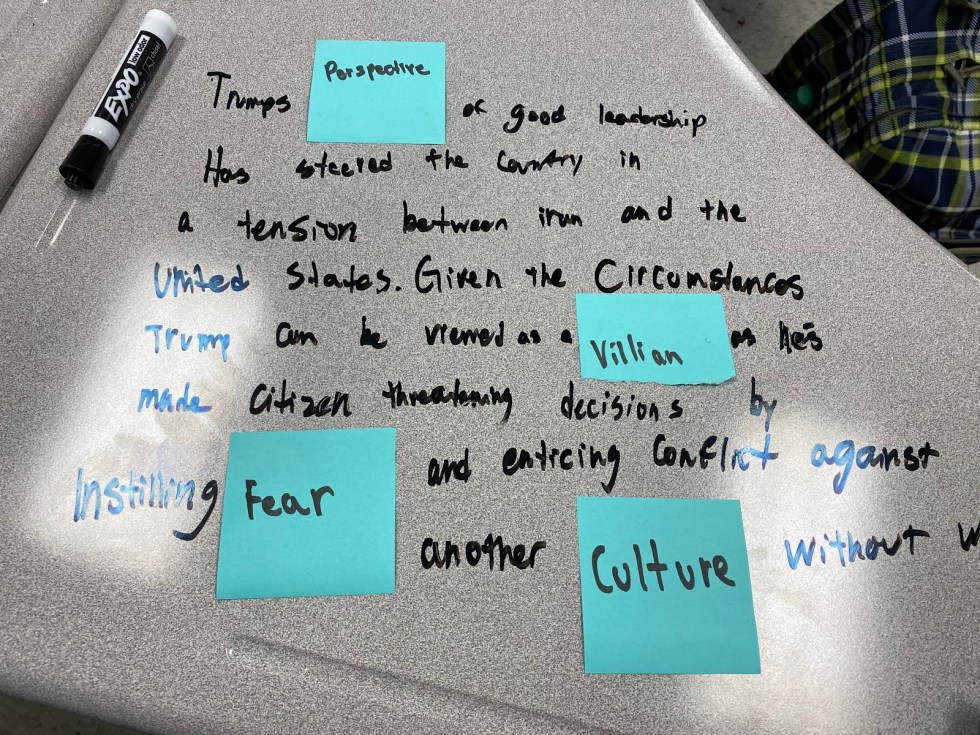 EXPO low odor
Trumps Perspective of good leadership
Has steered the Country in
a tension between iran and the
United States. Given the Circumstances
Trump can be viewed as a Villian as he's
made citizen threatening decisions by
Instilling Fear and enticing Conflict against
another Culture without w